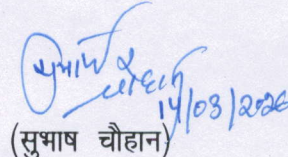 सुभाष चौहान
14/03/2026
(सुभाष चौहान)